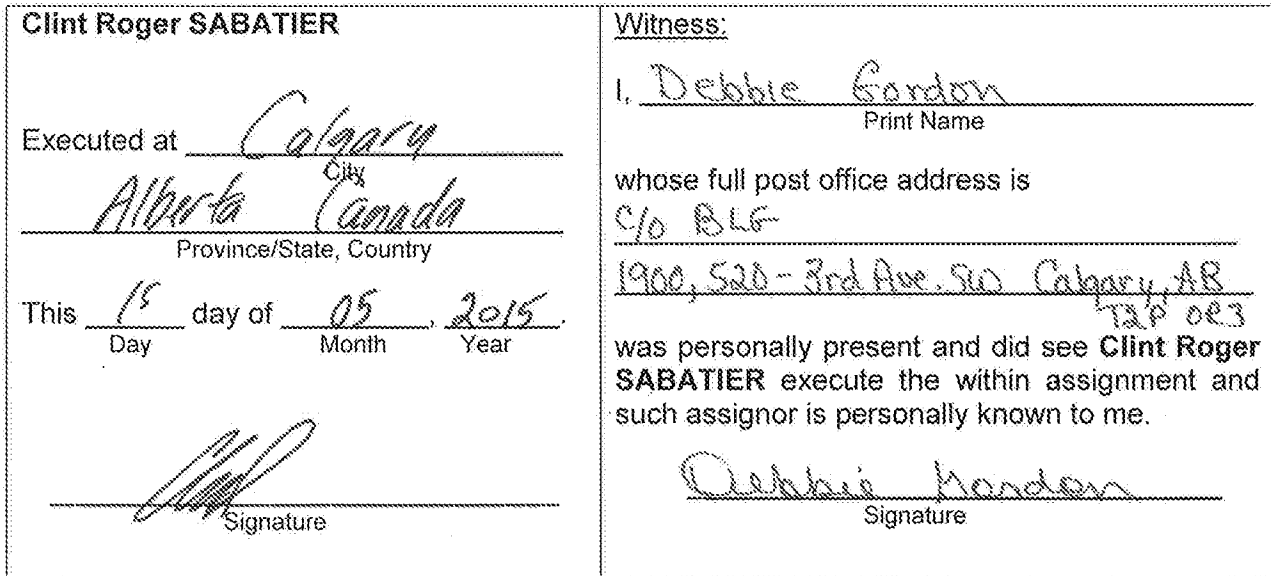 Clint Roger SABATIER
Executed at Calgary
City
Alberta Canada
Province/State, Country
This 15 day of 05, 2015.
Day Month Year
Signature
Witness:
I, Debbie Gordon
Print Name
whose full post office address is
C/O BLG
1900, 520 - 3rd Ave. SW Calgary, AB
T2P 0R3
was personally present and did see Clint Roger
SABATIER execute the within assignment and
such assignor is personally known to me.
Debbie Gordon
Signature